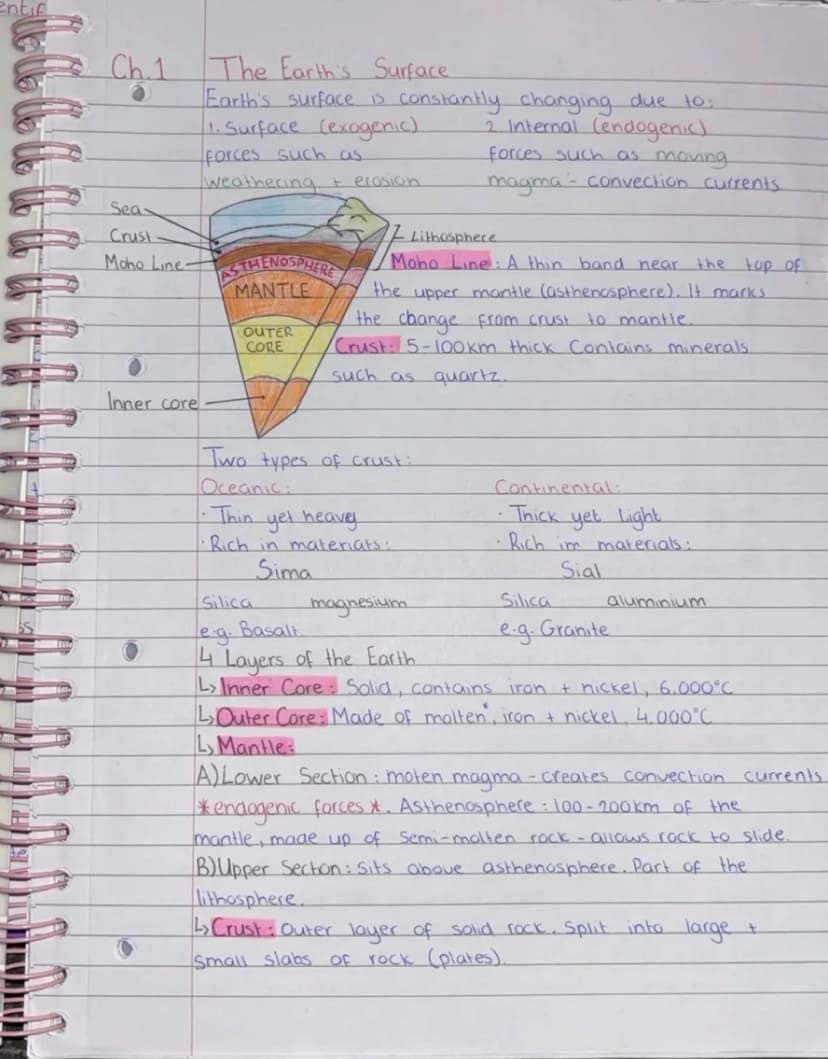 entif
Ch.1 The Earth's Surface
Earth's surface is constantly changing due to:
1. Surface (exogenic) 2 Internal (endogenic)
forces such as forces such as moving
weathering + erosion magma - convection currents
Sea
Crust Lithosphere
Moho Line ASTHENOSPHERE Moho Line: A thin band near the top of
MANTLE the upper mantle (asthenosphere). It marks
the change from crust to mantle.
OUTER
CORE Crust: 5-100km thick Contains minerals
such as quartz.
Inner core
Two types of crust:
Oceanic: Continental:
· Thin yet heavy · Thick yet Light
· Rich in materials: · Rich im materials:
Sima Sial
Silica magnesium Silica aluminium
e.g. Basalt e.g. Granite
4 Layers of the Earth
↳ Inner Core: Solid, contains iron + nickel, 6.000°C
↳ Outer Core: Made of molten, iron + nickel, 4.000°C
↳ Mantle:
A) Lower Section: moten magma - creates convection currents
*endogenic forces*. Asthenosphere: 100-200km of the
mantle, made up of semi-molten rock - allows rock to slide.
B) Upper Section: Sits above asthenosphere. Part of the
lithosphere.
↳ Crust: Outer layer of solid rock. Split into large +
small slabs of rock (plates).